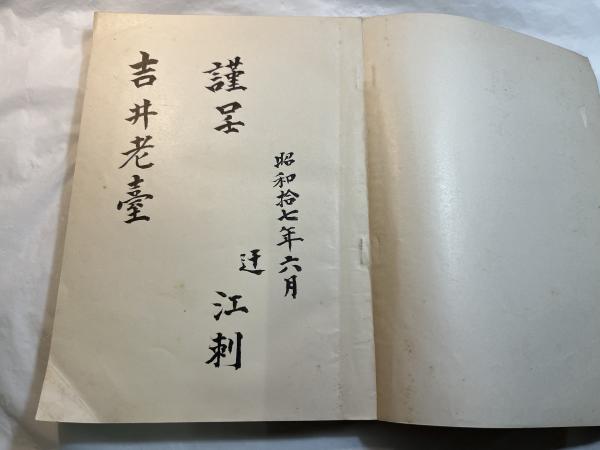 昭和拾七年六月
謹呈
迂 江刺
吉井老臺